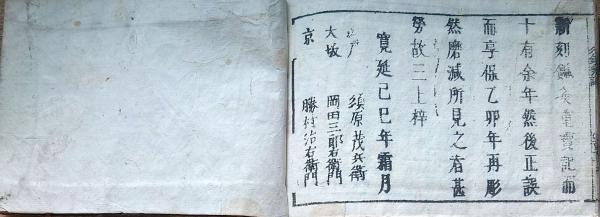 新刻鍼灸重宝記而
十有余年然後正誤
而享保乙卯年再彫
然磨滅所見之者甚
勞故三上梓
寛延己巳年霜月
江戸 須原茂兵衛
大坂 岡田三郎右衛門
京 勝村治右衛門